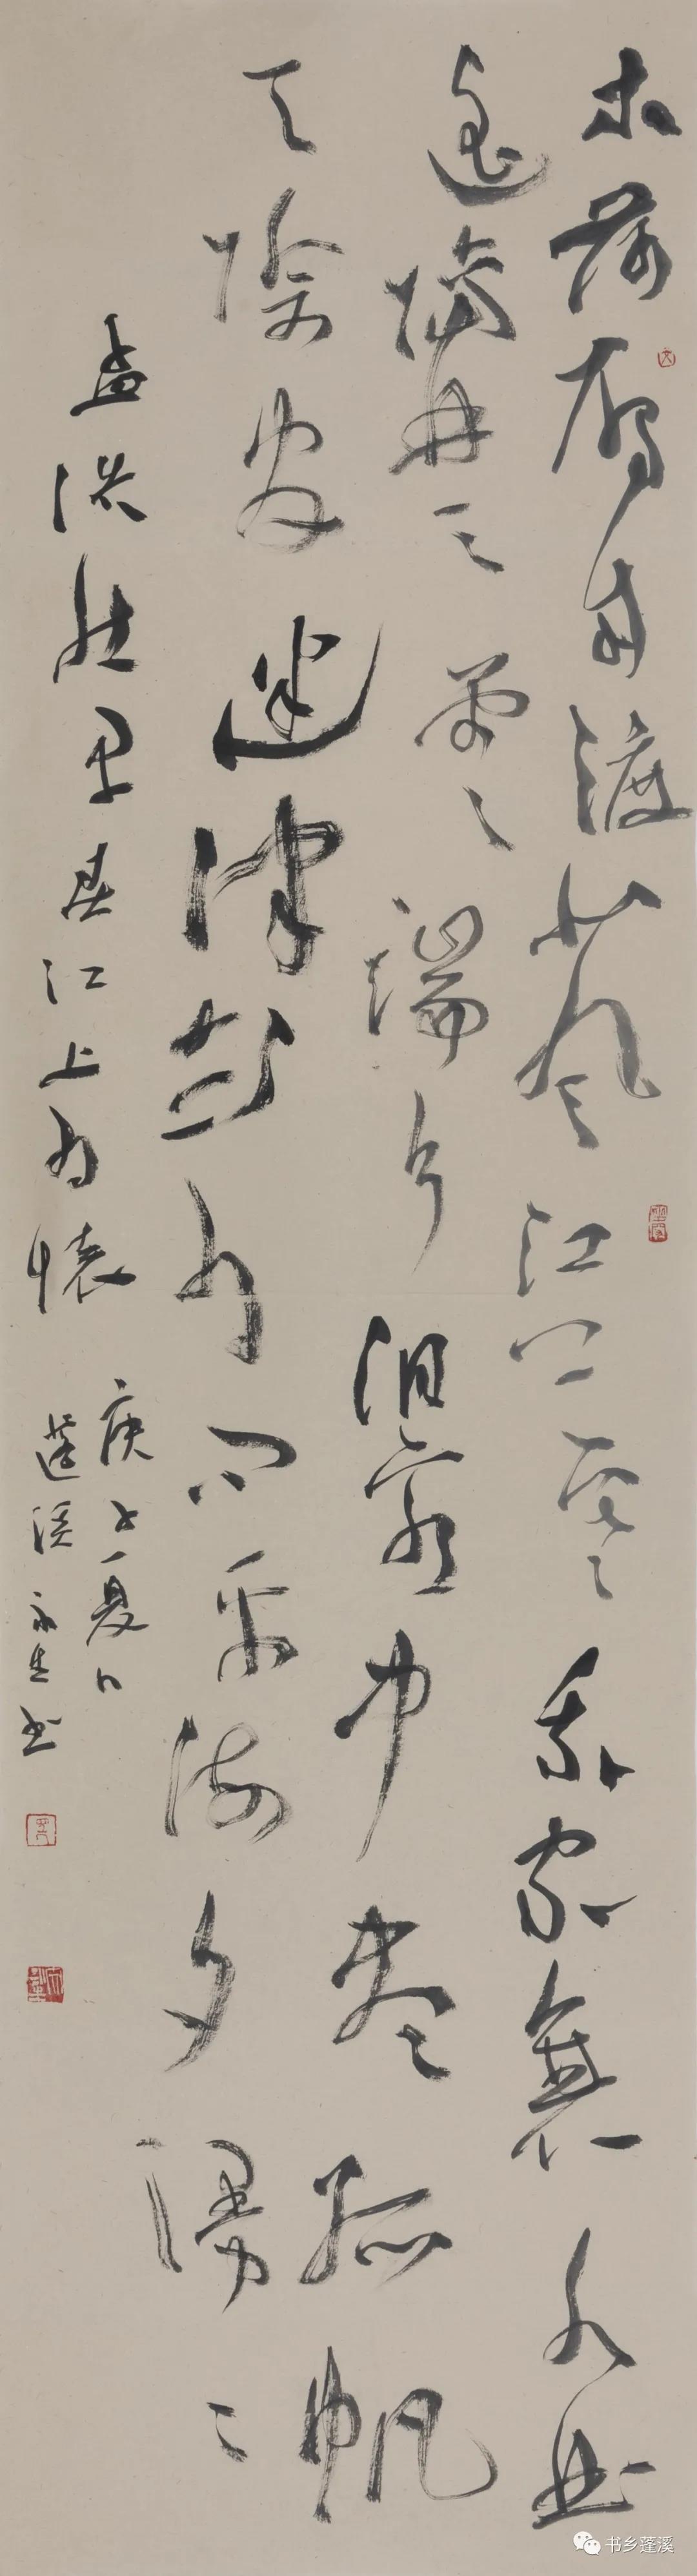 木落雁南渡北風江上寒我家襄水曲
遥隔楚雲端乡泪客中盡孤帆
天際看迷津欲有問平海夕漫々
孟浩然早寒江上有懷
庚子夏日
蓬溪永生书
书乡蓬溪